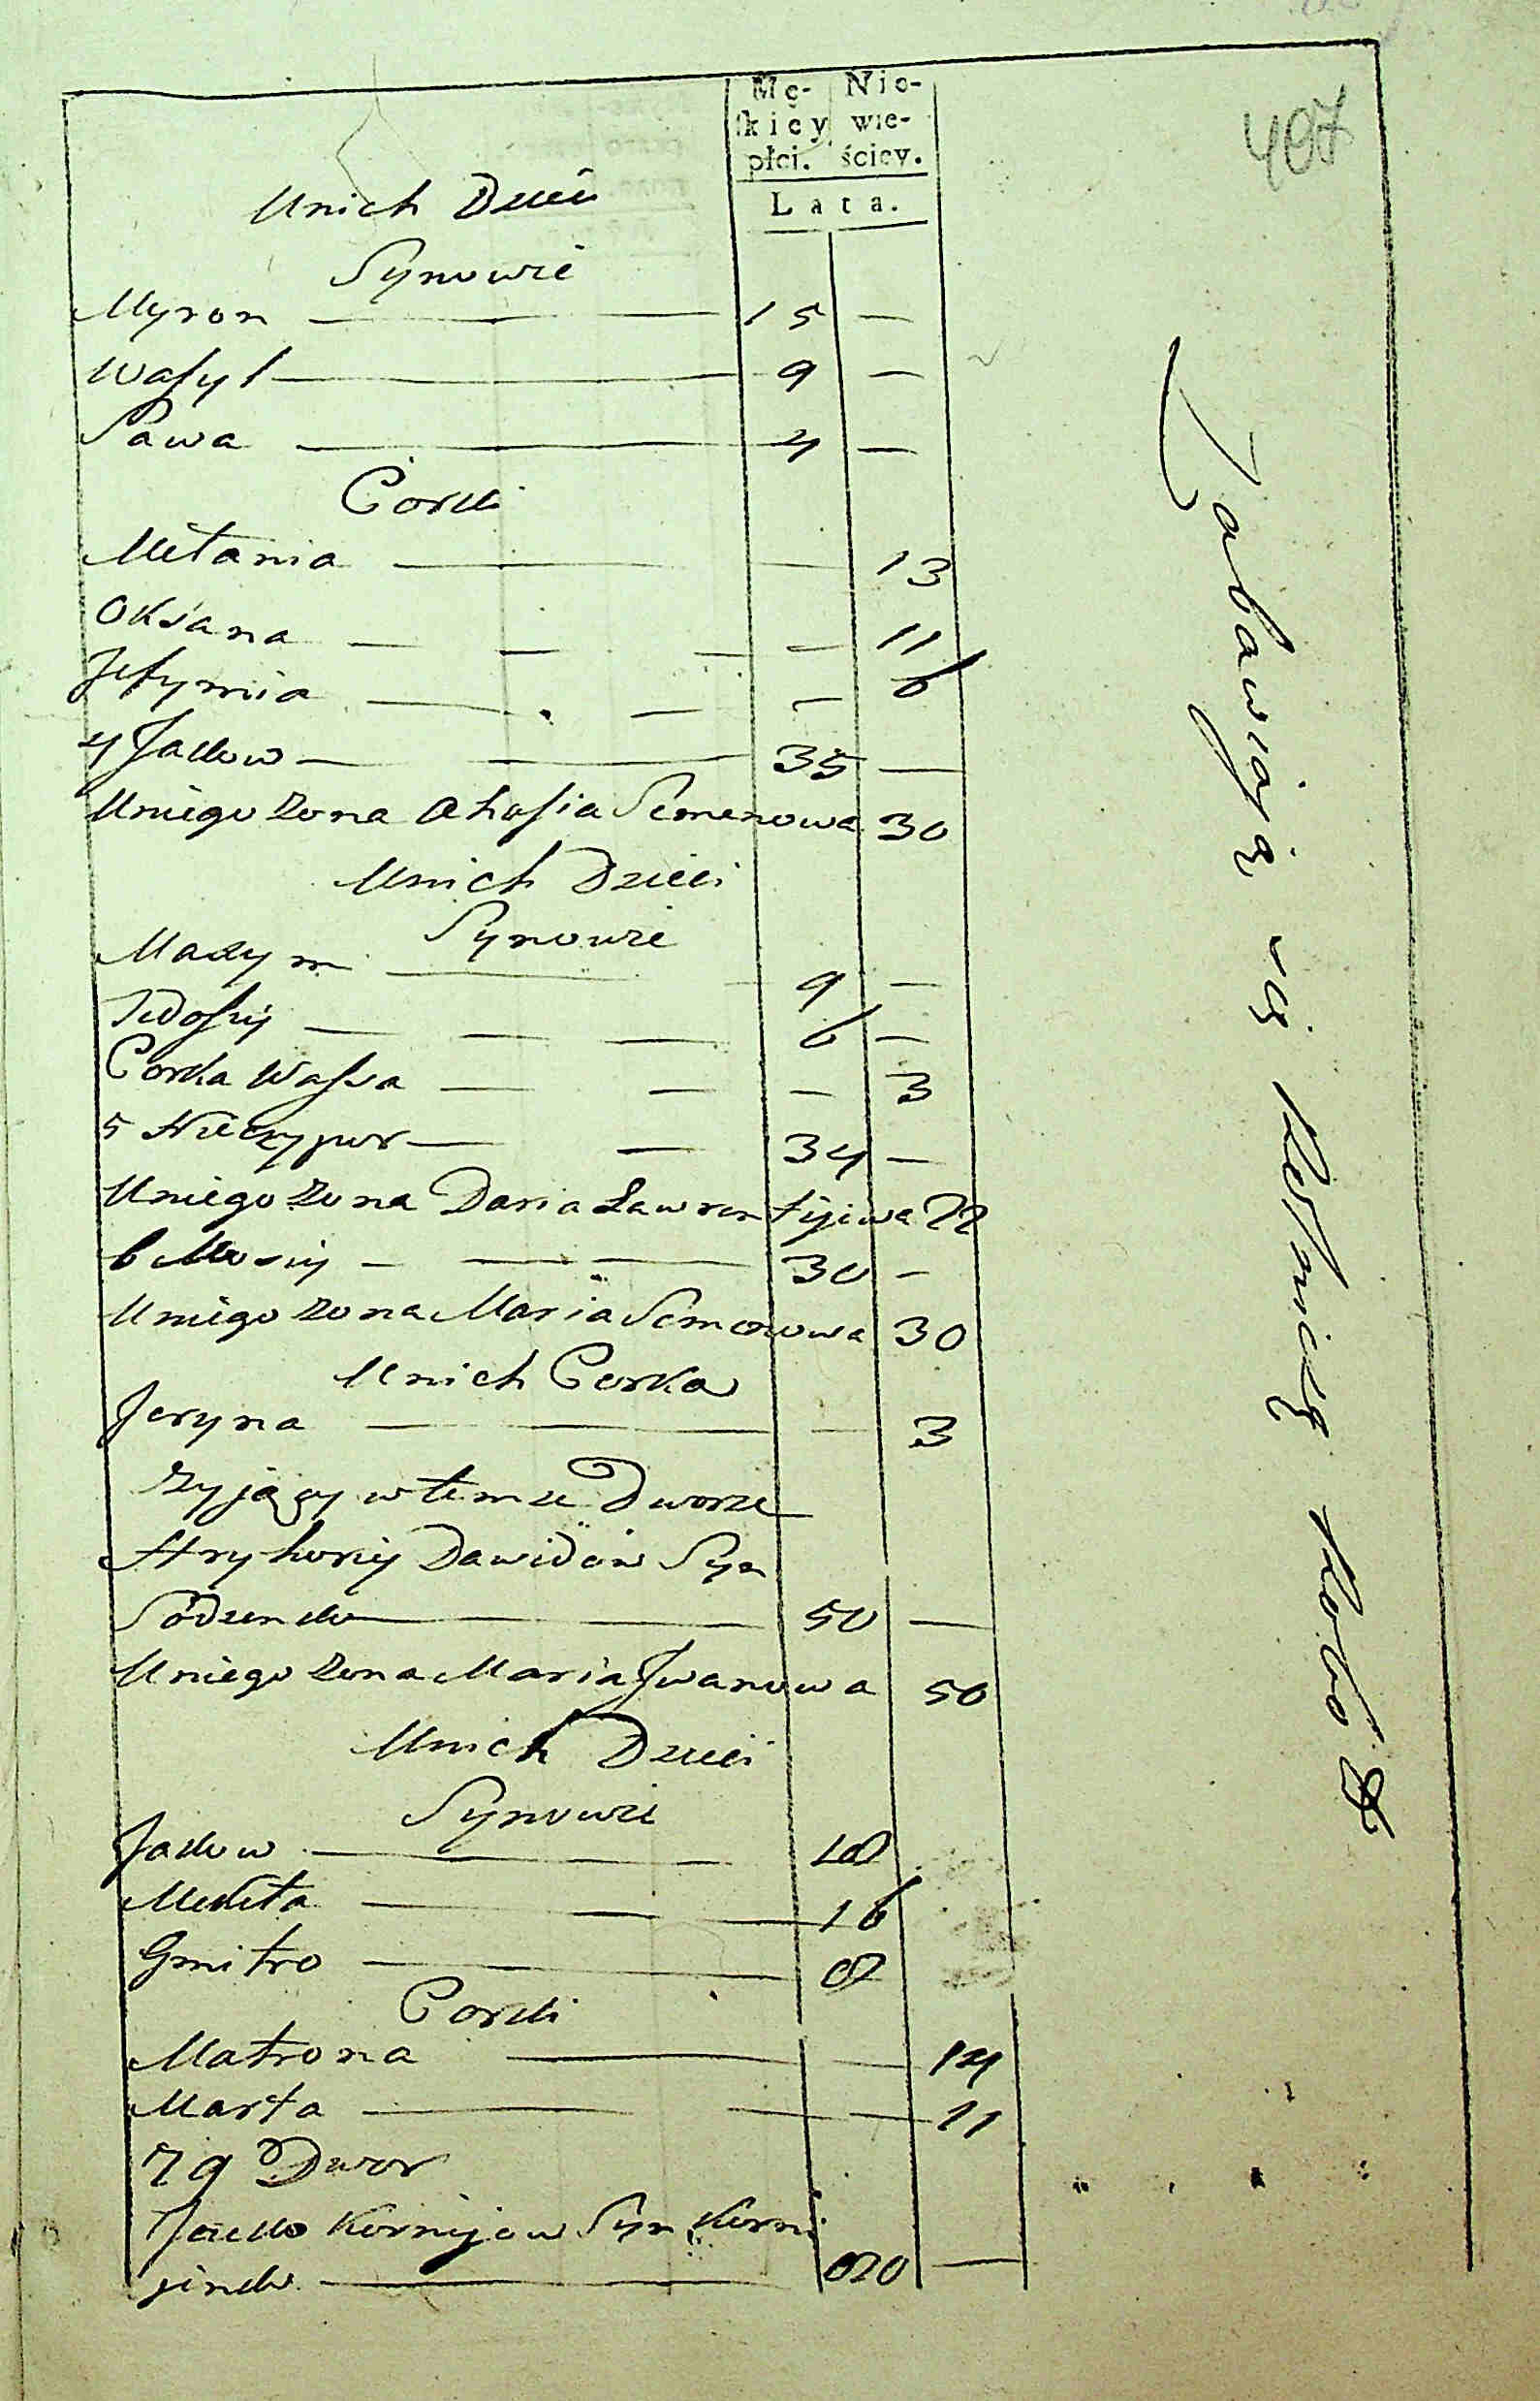 407
Mę- Nie-
skiey wie-
płci. ściey.
Lata.
Unich Dzieci
Synowie
Myron — 15 —
Wasyl — 9 —
Sawa — 4 —
Corki
Melania — — 13
Oksana — — 11
Jefymia — — 6
4 Jakow — 35 —
Uniego Zona Ahafia Semenowa 30
Unich Dzieci
Synowie
Maxym — 9 —
Fedosiy — 6 —
Corka Wassa — — 3
5 Niczypor — 34 —
Uniego Zona Daria Ławrentyjewa 22
6 Mosiy — 30 —
Uniego Zona Maria Semenowa 30
Unich Corka
Jeryna — — 3
Zyjący wtemze Dworze
Hryhoriy Dawidow Syn
— 50 —
Uniego Zona Maria Jwanowa 50
Unich Dzieci
Synowie
Jakow — 18
Mikita — 16
Gmitro — 8
Corki
Matrona — — 14
Marta — — 11
7 9 Dwor
Kornijow Syn Korni
jenko — 80 —
Zabawiają się Rolniczą Robotą